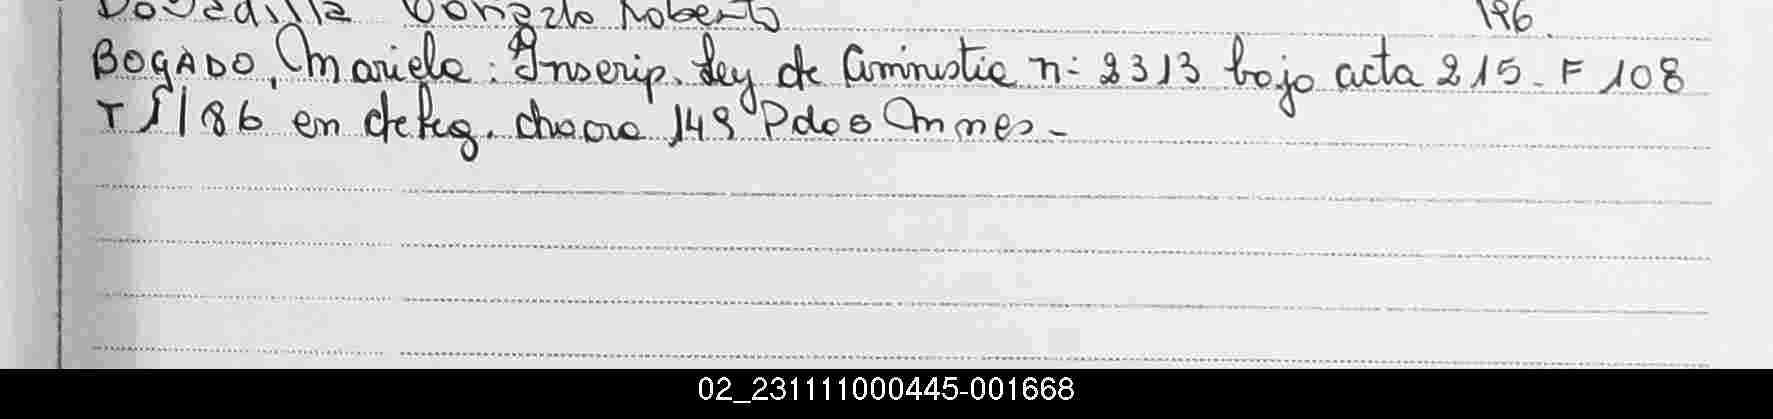 Bovadilla Gonzalo Roberto 196
BOGADO, Mariela: Inscrip. Ley de Aminustia n: 2313 bajo acta 215. F 108
T I/86 en deleg. chacra 149 Pdas Mnes.
02_231111000445-001668